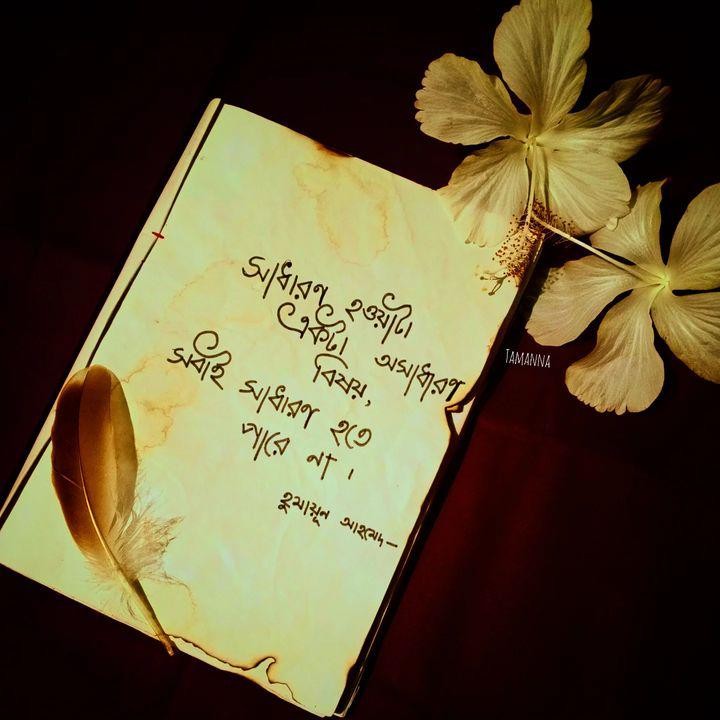 সাধারণ হওয়াটা
একটা অসাধারণ
বিষয়,
সবাই সাধারণ হতে
পারে না।
হুমায়ূন আহমেদ—
TAMANNA